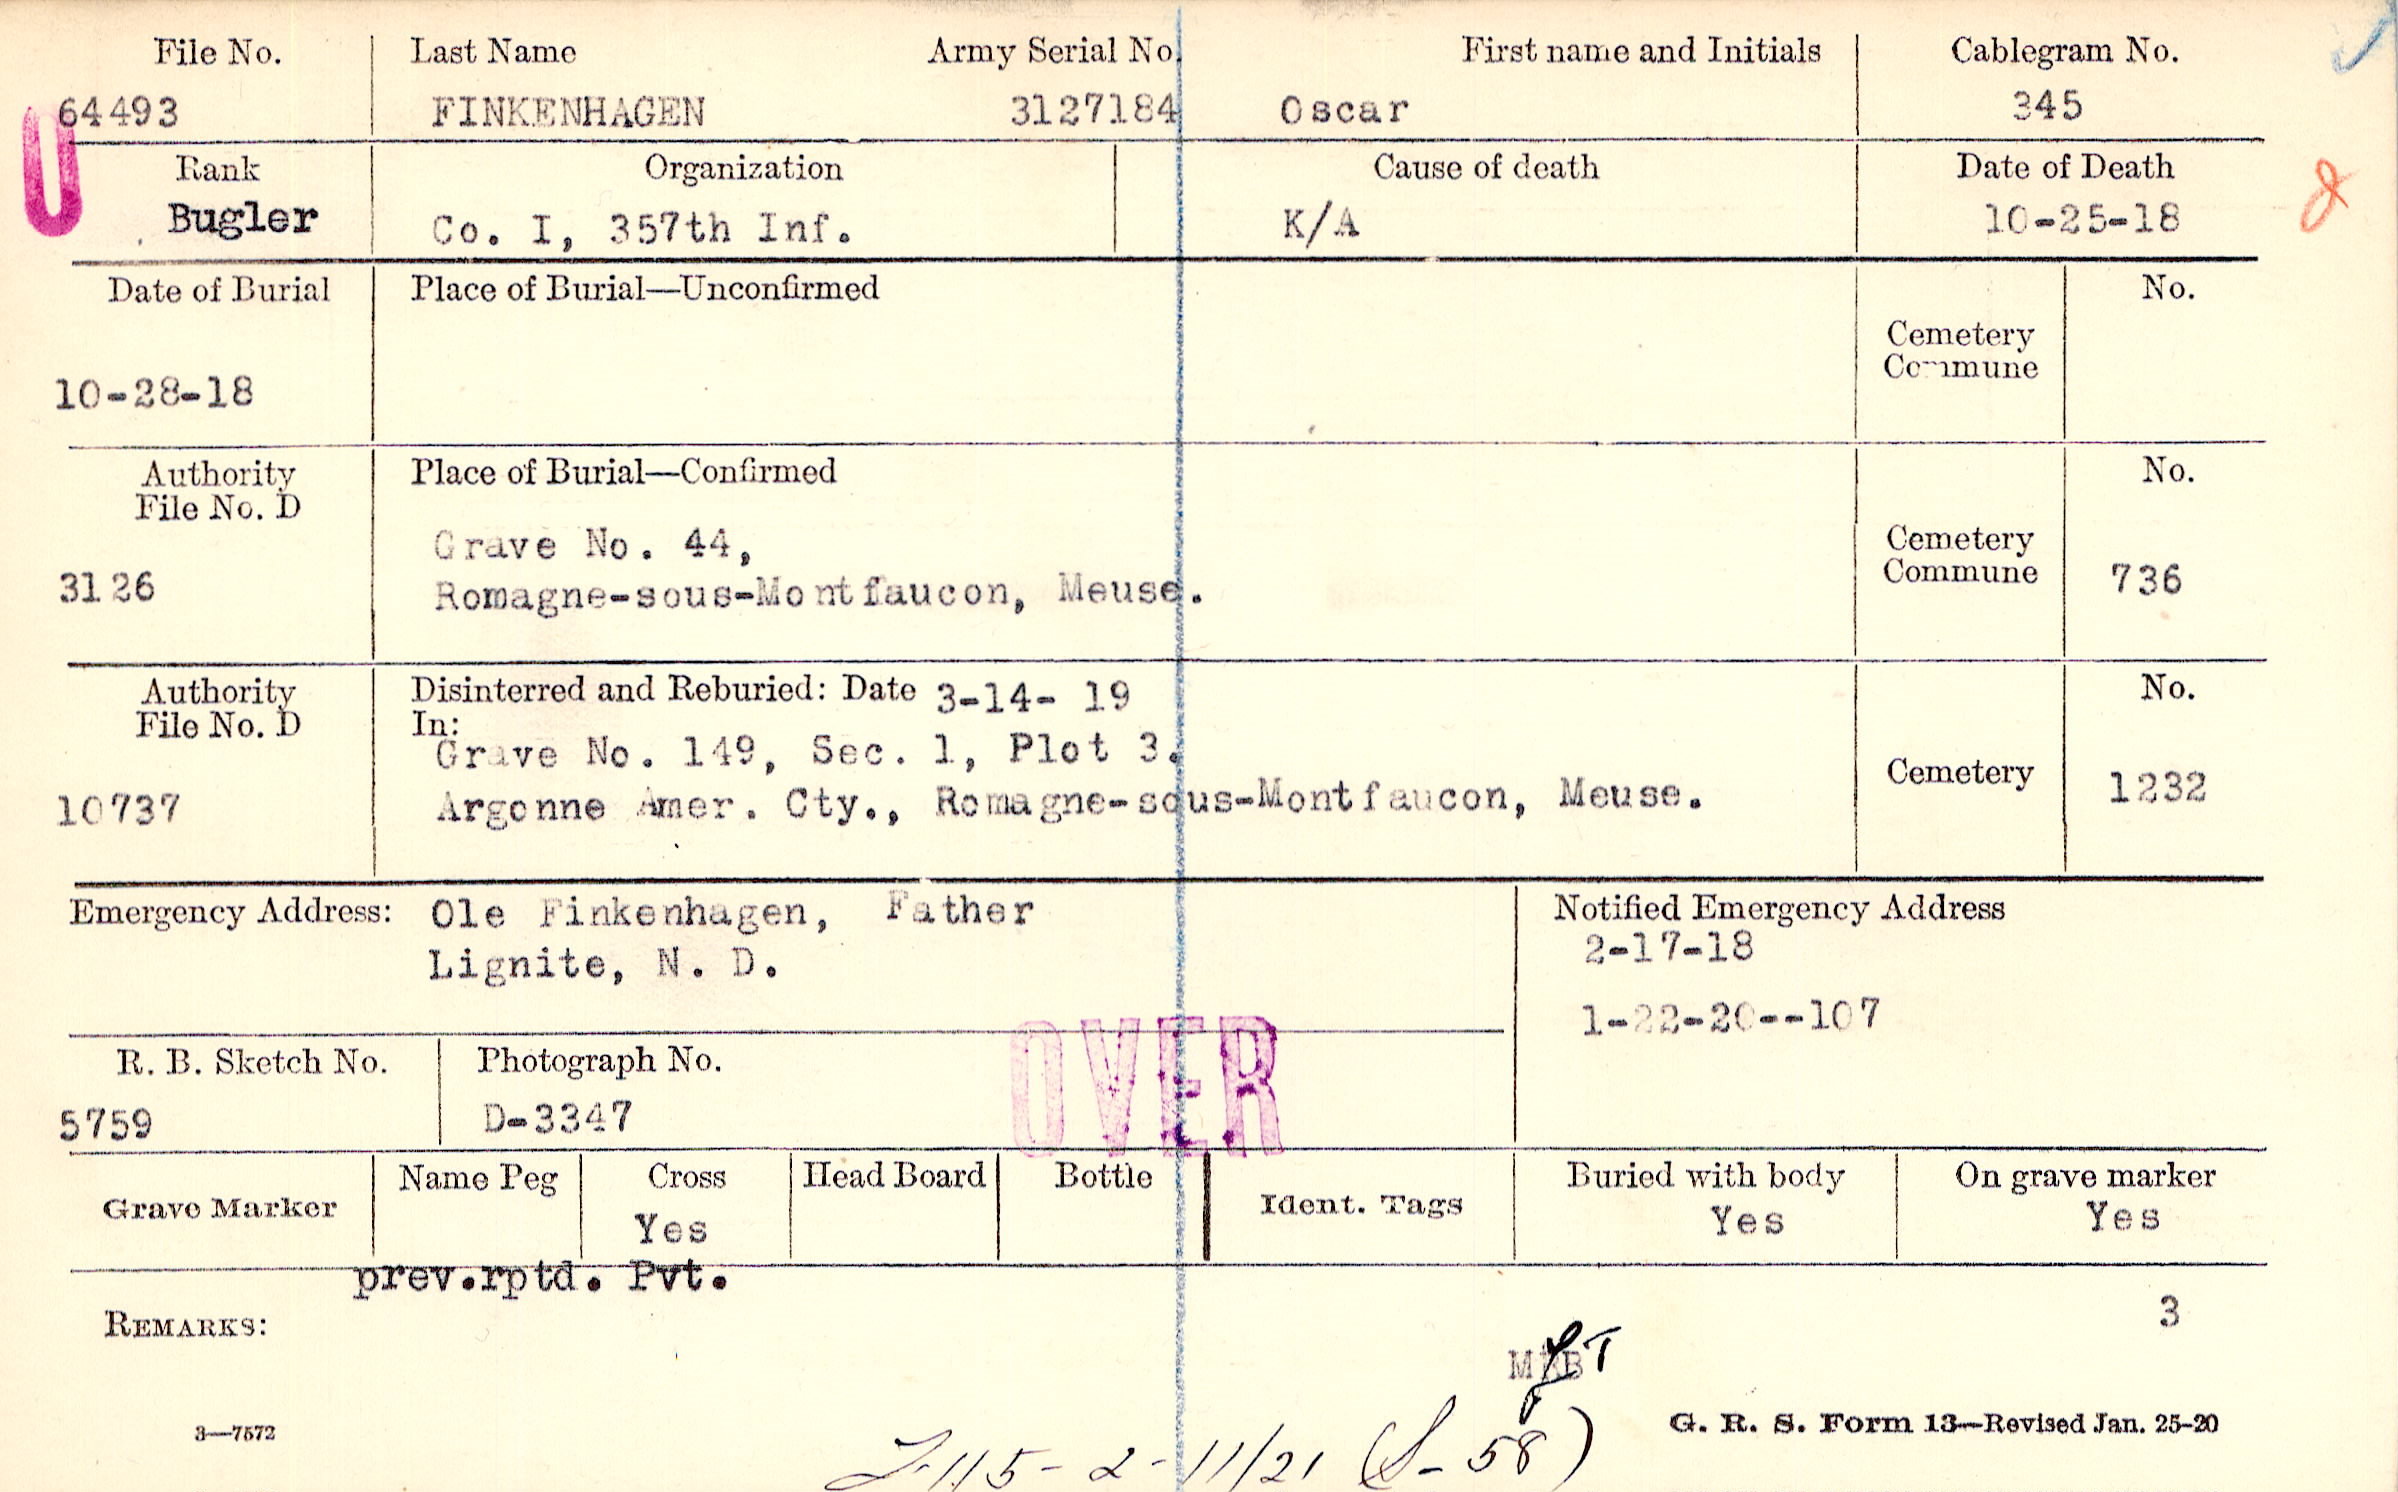 File No. Last Name Army Serial No. First name and Initials Cablegram No.
64493 FINKENHAGEN 3127184 Oscar 345
U
Rank Organization Cause of death Date of Death
Bugler Co. I, 357th Inf. K/A 10-25-18
Date of Burial Place of Burial—Unconfirmed No.
Cemetery
Commune
10-28-18
Authority Place of Burial—Confirmed No.
File No. D
Grave No. 44, Cemetery
3126 Romagne-sous-Montfaucon, Meuse. Commune 736
Authority Disinterred and Reburied: Date 3-14- 19 No.
File No. D In:
Grave No. 149, Sec. 1, Plot 3. Cemetery
10737 Argonne Amer. Cty., Romagne-sous-Montfaucon, Meuse. 1232
Emergency Address: Ole Finkenhagen, Father Notified Emergency Address
Lignite, N. D. 2-17-18
1-22-20--107
OVER
R. B. Sketch No. Photograph No.
5759 D-3347
Grave Marker Name Peg Cross Head Board Bottle Ident. Tags Buried with body On grave marker
Yes Yes Yes
prev.rptd. Pvt.
REMARKS: 3
3—7572 G. R. S. Form 13—Revised Jan. 25-20
2-11/21 ( - 58)